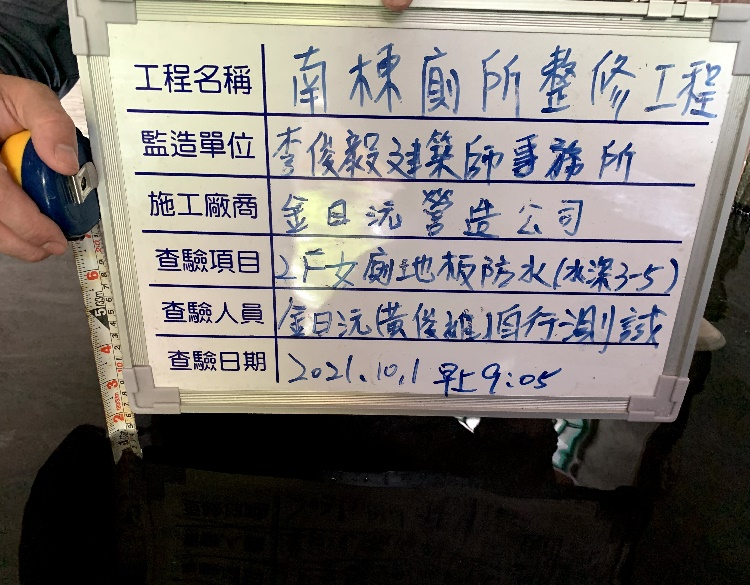 工程名稱 南棟廁所整修工程
監造單位 李俊毅建築師事務所
施工廠商 金日沅營造公司
查驗項目 2F女廁地板防水(水深3-5)
查驗人員 金日沅(黃俊雄)自行測試
查驗日期 2021.10.1 早上9:05